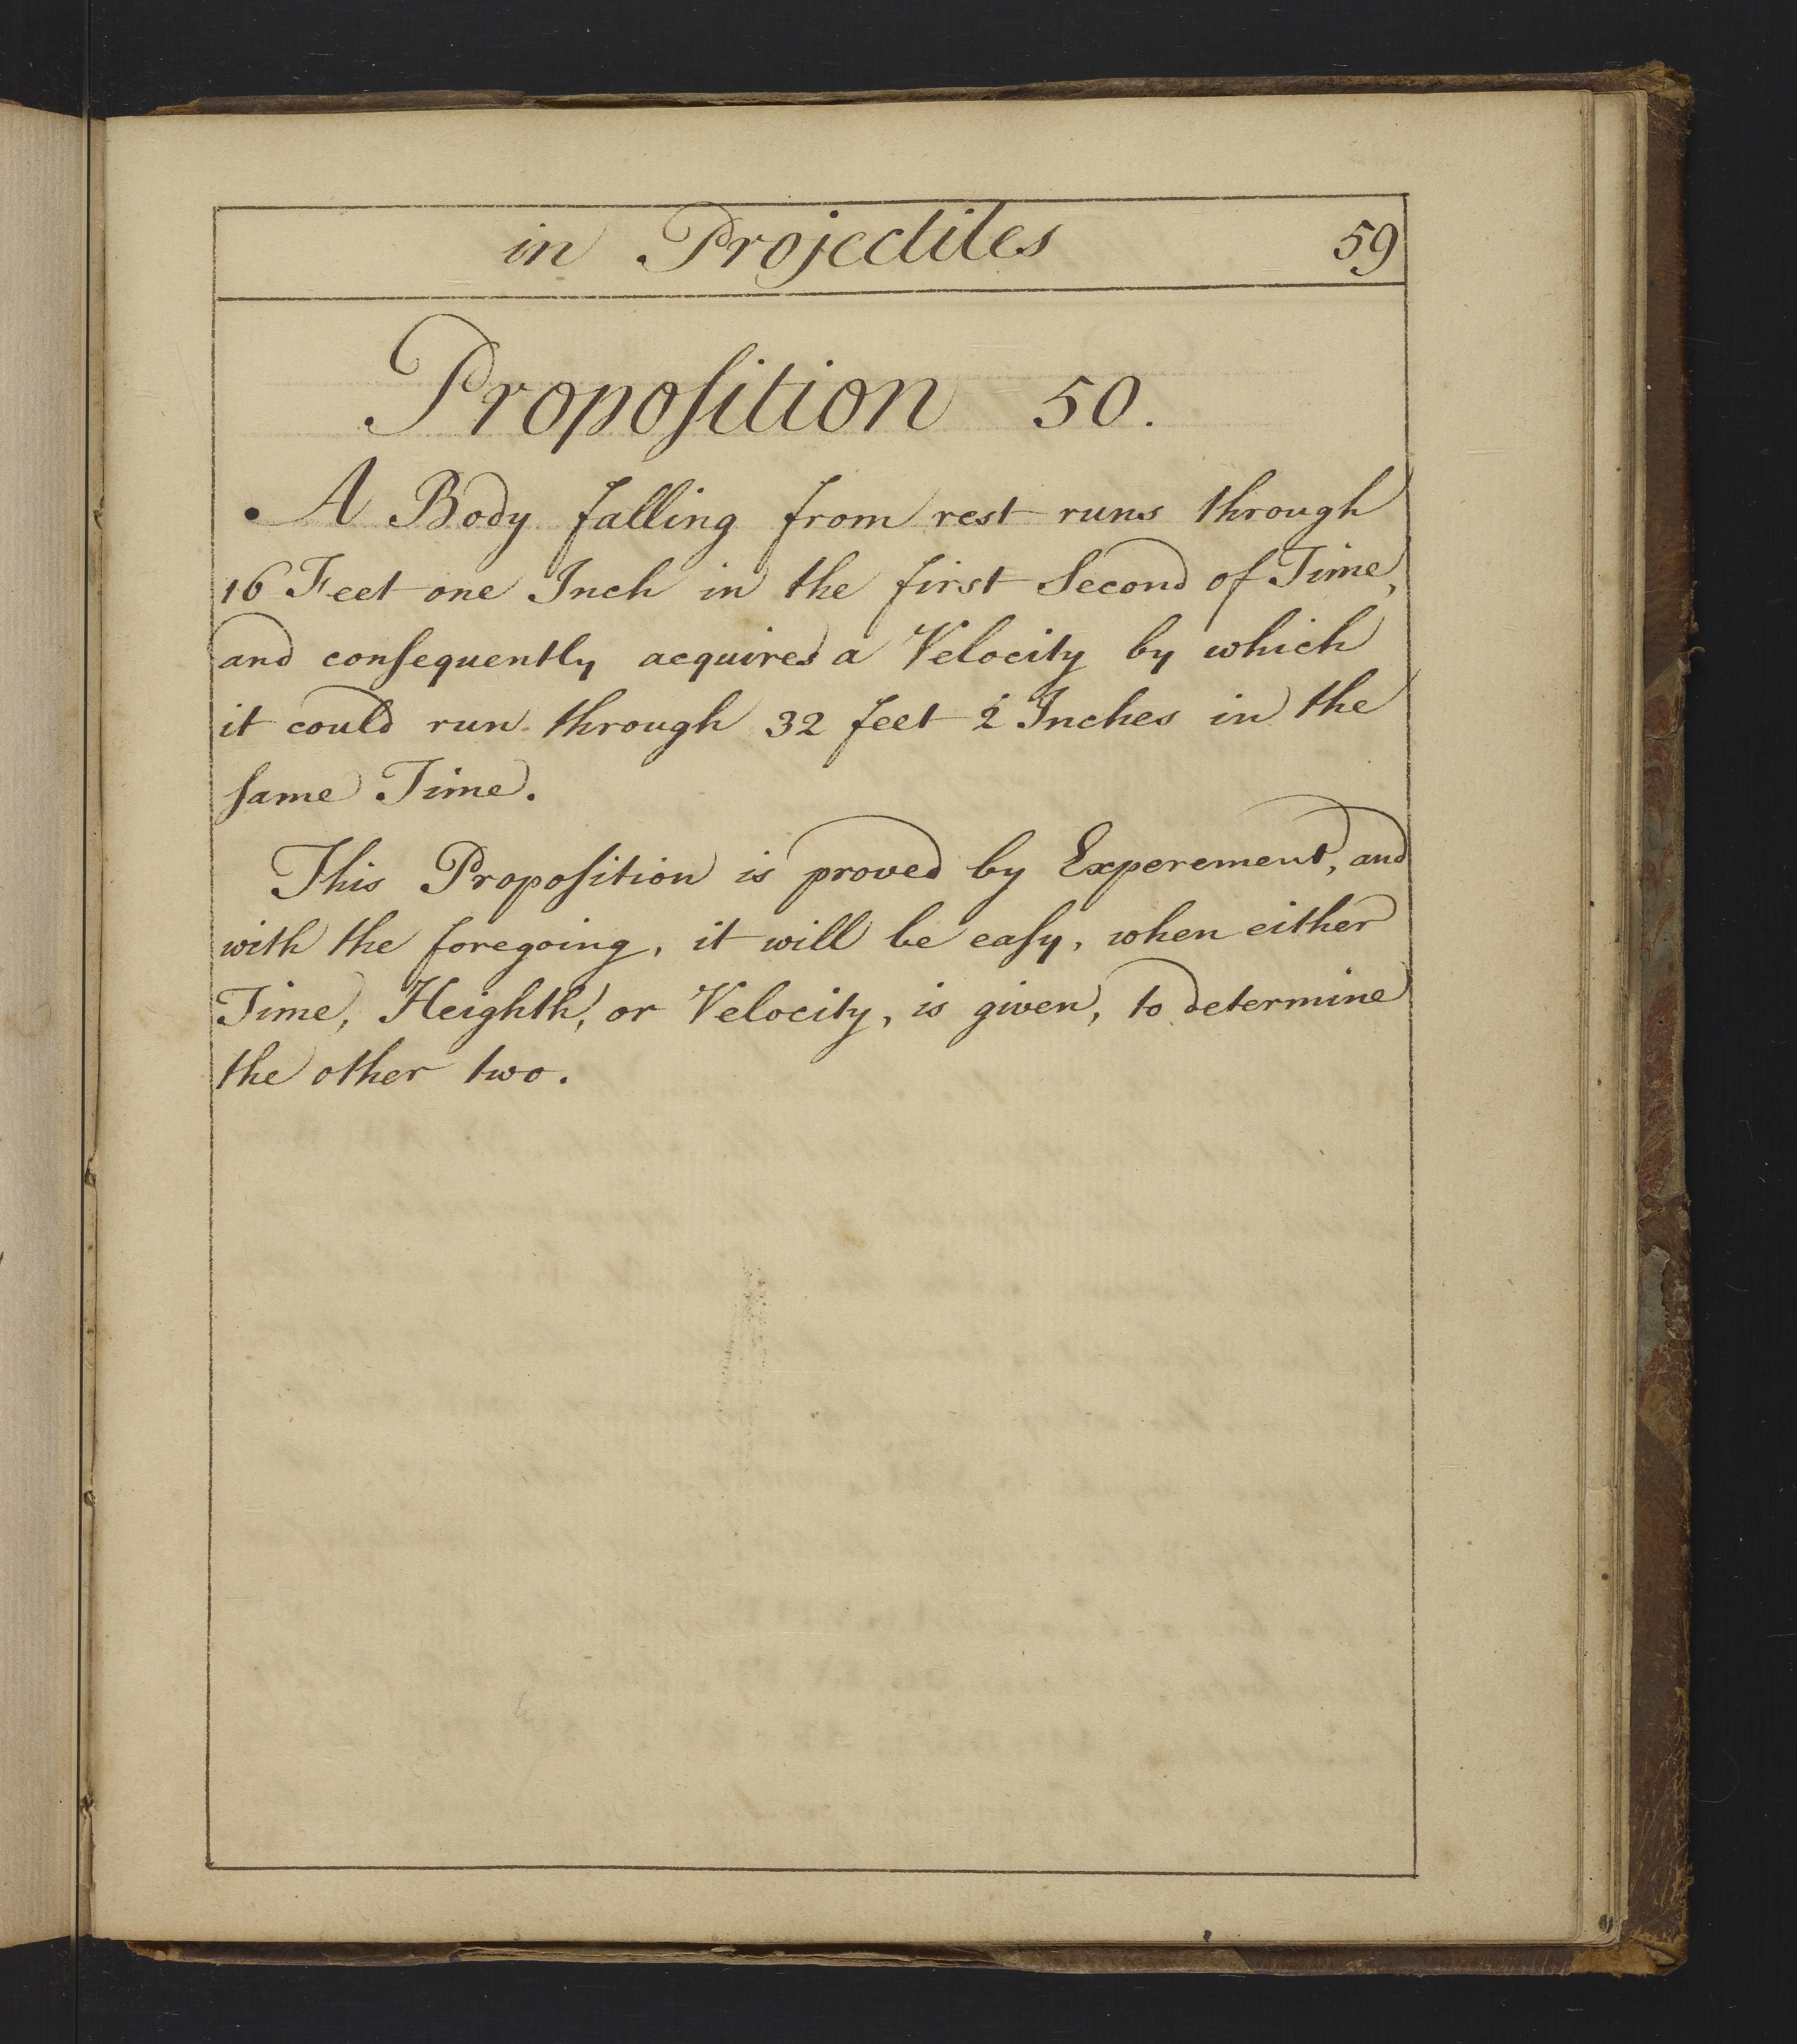 in Projectiles 59
Propoſition 50.
A Body falling from rest runs through
16 Feet one Inch in the first Second of Time,
and conſequently acquires a Velocity by which
it could run through 32 feet 2 Inches in the
ſame Time.
This Propoſition is proved by Experement, and
with the foregoing, it will be eaſy, when either
Time, Heighth, or Velocity, is given, to determine
the other two.